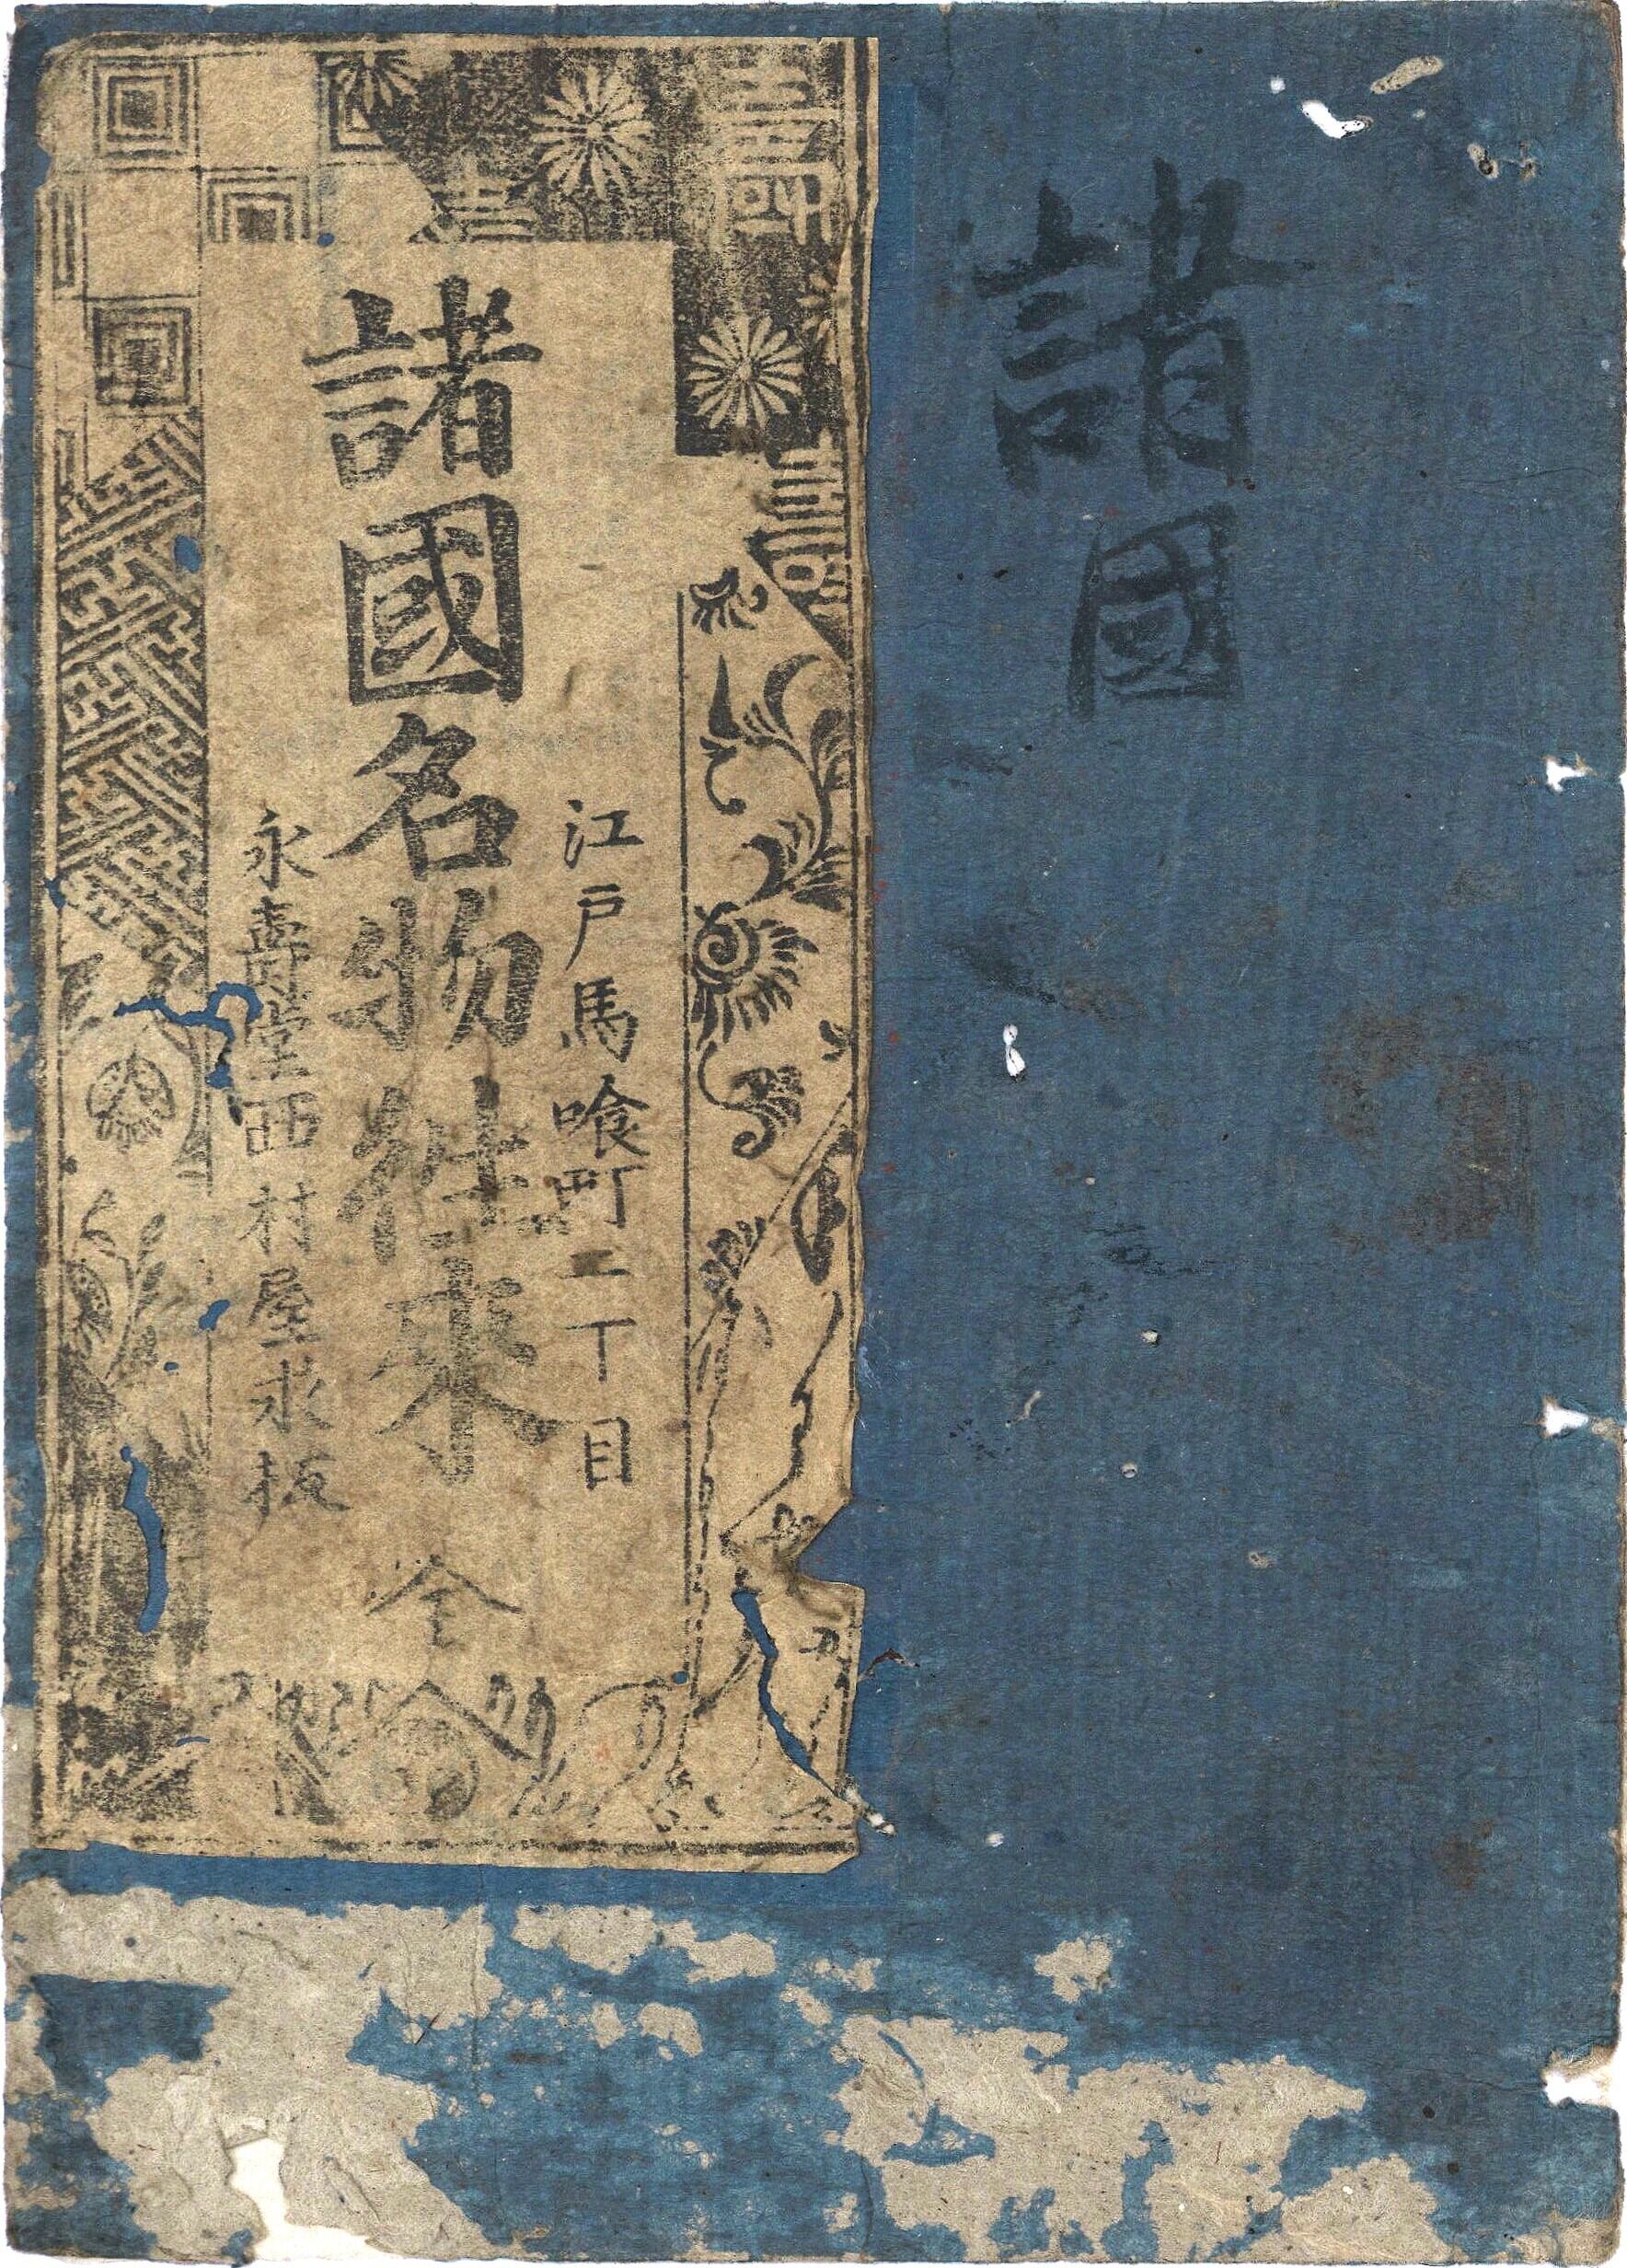 諸國
江戸馬喰町二丁目
諸國名物往来 全
永壽堂西村屋求板